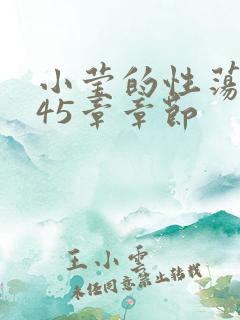 小莹的性荡
45章章节
王小雲
未经同意禁止转载